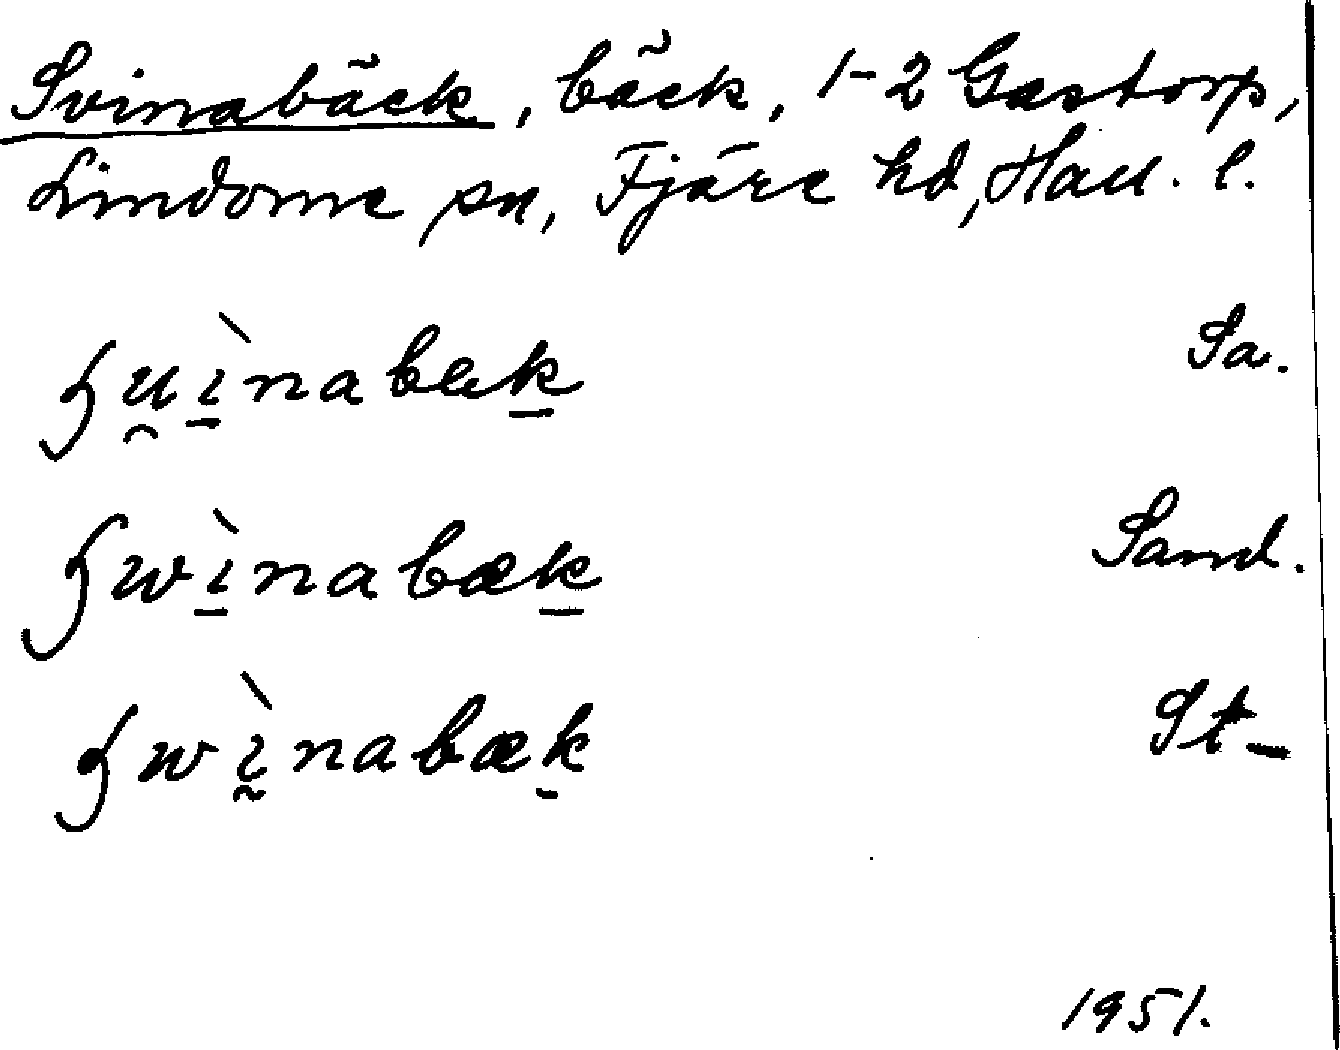 Svinabäck, bäck, 1-2 Gastorp,
Lindome sn, Fjäre hd, Hall. l.
ʃu̯ı̱̀nabæḵ Sa.
ʃwı̱̀nabæḵ Sand.
ʃwı̰̀nabæḵ St.
1951.